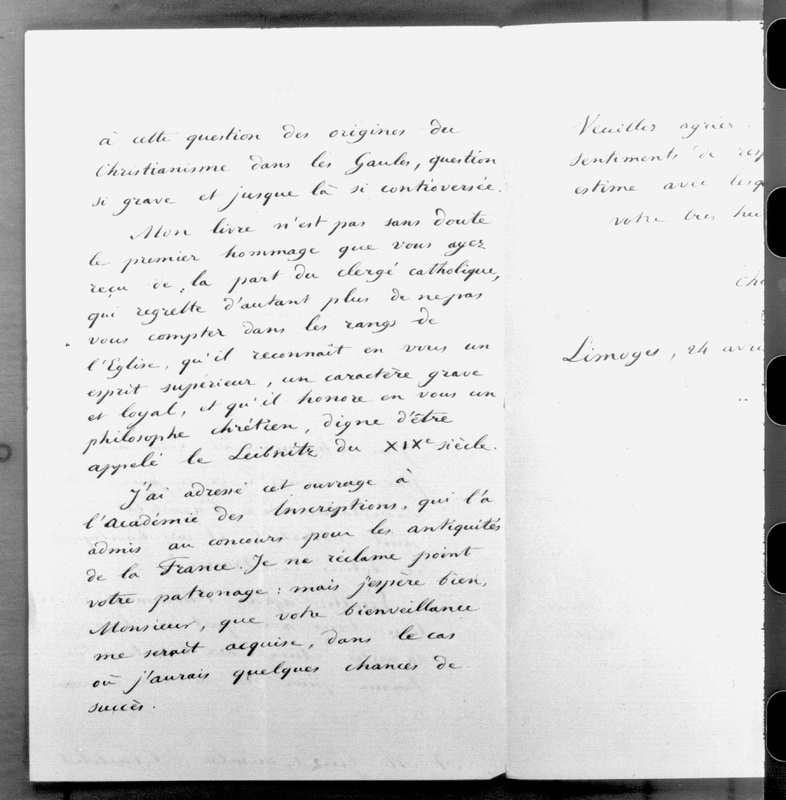 à cette question des origines du
Christianisme dans les Gaules, question
si grave et jusque là si controversée.
Mon livre n'est pas sans doute
le premier hommage que vous ayez
reçu de la part du clergé catholique,
qui regrette d'autant plus de ne pas
vous compter dans les rangs de
l'Eglise, qu'il reconnaît en vous un
esprit supérieur, un caractère grave
et loyal, et qu'il honore en vous un
philosophe chrétien, digne d'être
appelé le Leibnitz du XIXe siècle.
J'ai adressé cet ouvrage à
l'académie des Inscriptions, qui l'a
admis au concours pour les antiquités
de la France. Je ne réclame point
votre patronage : mais j'espère bien,
Monsieur, que votre bienveillance
me serait acquise, dans le cas
où j'aurais quelques chances de
succès.
Veuillez agréer
sentiments de resp
estime avec lesq
votre très hu
cha
Limoges, 24 avri